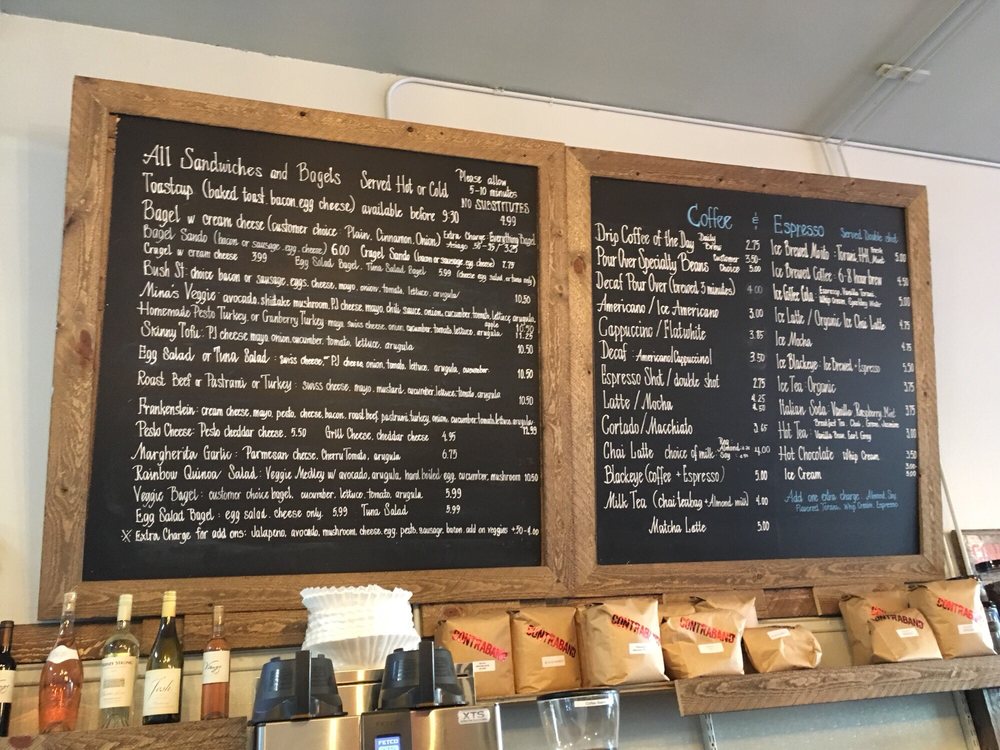 All Sandwiches and Bagels Served Hot or Cold Please allow
5-10 minutes
NO SUBSTITUTES
Toastcup (baked toast, bacon, egg, cheese) available before 9:30 4.99
Bagel w cream cheese (customer choice: Plain, Cinnamon, Onion) Extra Charge Everything Bagel
Bagel Sando (bacon or sausage, egg, cheese) 6.00 Cragel Sando (bacon or sausage, egg, cheese) 7.79
Cragel w cream cheese 3.99 Egg Salad Bagel, Tuna Salad Bagel 5.99 (cheese, egg salad, or tuna only)
Bush St: choice bacon or sausage, eggs, cheese, mayo, onion, tomato, lettuce, arugula 10.50
Mina's Veggie: avocado, shiitake mushroom, PJ cheese, mayo, chili sauce, onion, cucumber, tomato, lettuce, arugula
Homemade Pesto Turkey, or Cranberry Turkey: mayo, swiss cheese, onion, cucumber, tomato, lettuce, arugula apple 11.25
Skinny Tofu: PJ cheese, mayo, onion, cucumber, tomato, lettuce, arugula 10.50
Egg Salad or Tuna Salad: swiss cheese, PJ cheese, onion, tomato, lettuce, arugula, cucumber 10.50
Roast Beef or Pastrami or Turkey: swiss cheese, mayo, mustard, cucumber, lettuce, tomato, arugula 10.50
Frankenstein: cream cheese, mayo, pesto, cheese, bacon, roast beef, pastrami, turkey, onion, cucumber, tomato, lettuce, arugula 12.99
Pesto Cheese: Pesto cheddar cheese. 5.50 Grill Cheese, cheddar cheese 4.95
Margherita Garlic: Parmesan cheese, Cherry Tomato, arugula 6.75
Rainbow Quinoa Salad: Veggie Medley w/ avocado, arugula, hard boiled egg, cucumber, mushroom 10.50
Veggie Bagel: customer choice bagel, cucumber, lettuce, tomato, arugula 5.99
Egg Salad Bagel: egg salad, cheese only. 5.99 Tuna Salad 5.99
X Extra Charge for add ons: Jalapeno, avocado, mushroom, cheese, egg, pesto, sausage, bacon, add on veggies +.50-4.00
Coffee & Espresso Served Double shot
Drip Coffee of the Day Daily Brew 2.75
Pour Over Specialty Beans Customer Choice 3.50-5.00
Decaf Pour Over (Brewed 3 minutes) 4.00
Americano / Ice Americano 3.00
Cappuccino / Flatwhite 3.85
Decaf: Americano | Cappuccino | 3.50
Espresso Shot / double shot 2.75
Latte / Mocha 4.25
4.50
Cortado / Macchiato 3.65
Chai Latte choice of milk 4.00
Blackeye (Coffee + Espresso) 5.00
Milk Tea (Chai teabag + Almond milk) 4.00
Matcha Latte 5.00
Ice Brewed Mojito: Torani, H&H, Mint 5.00
Ice Brewed Coffee: 6-8 hour brew 4.50
Ice Coffee Cola Espresso, Vanilla Torani,
Whip Cream, Sparkling Water 5.00
Ice Latte / Organic Ice Chai Latte 4.75
Ice Mocha 4.75
Ice Blackeye: Ice Brewed + Espresso 5.50
Ice Tea: Organic 3.75
Italian Soda: Vanilla Raspberry, Mint 3.75
Hot Tea: Breakfast Tea, Chai, Green, Jasmine
Vanilla Bean, Earl Grey 3.00
Hot Chocolate Whip Cream 3.50
Ice Cream
Add one extra charge: Almond, Soy,
Flavored Torani, Whip Cream, Espresso
CONTRABAND
CONTRABAND
CONTRABAND
CONTRABAND
CONTRABAND
CONTRABAND
Josh
FETCO
XTS